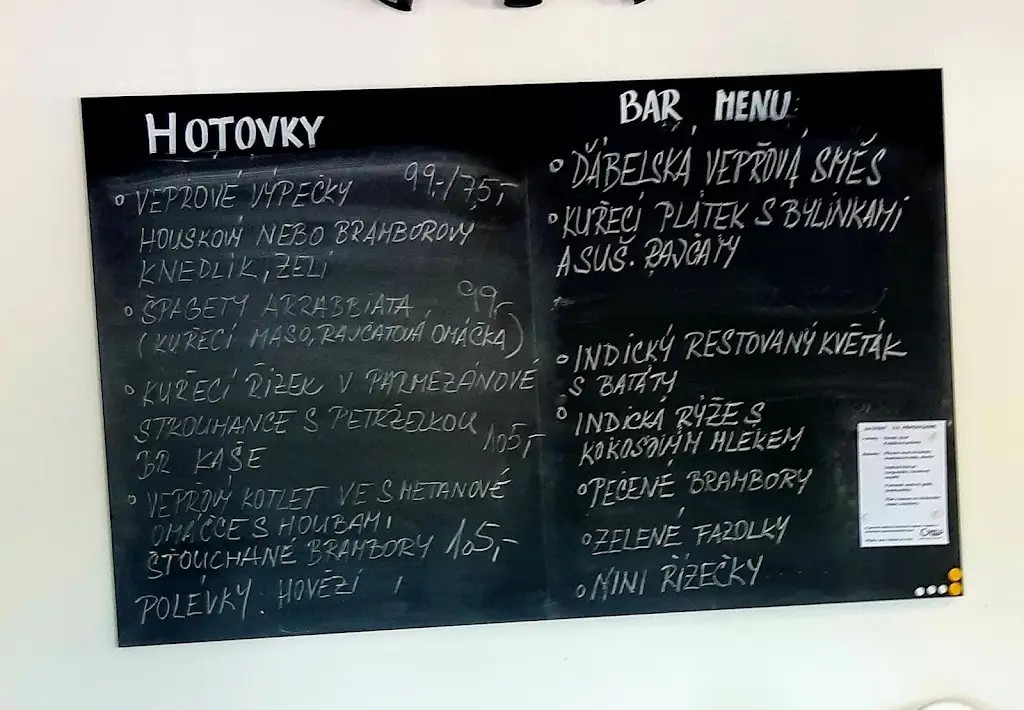 HOTOVKY
VEPŘOVÉ VÝPEČKY 99,-/75,-
HOUSKOVÝ NEBO BRAMBOROVÝ
KNEDLÍK, ZELÍ
ŠPAGETY ARRABBIATA 99,-
(KUŘECÍ MASO, RAJČATOVÁ OMÁČKA)
KUŘECÍ ŘÍZEK V PARMEZÁNOVÉ
STROUHANCE S PETRŽELKOU
BR. KAŠE 105,-
VEPŘOVÝ KOTLET VE SMETANOVÉ
OMÁČCE S HOUBAMI
ŠŤOUCHANÉ BRAMBORY 105,-
POLÉVKY: HOVĚZÍ
BAR MENU
ĎÁBELSKÁ VEPŘOVÁ SMĚS
KUŘECÍ PLÁTEK S BYLINKAMI
A SUŠ. RAJČATY
INDICKÝ RESTOVANÝ KVĚTÁK
S BATÁTY
INDICKÁ RÝŽE S
KOKOSOVÝM MLÉKEM
PEČENÉ BRAMBORY
ZELENÉ FAZOLKY
MINI ŘÍZEČKY